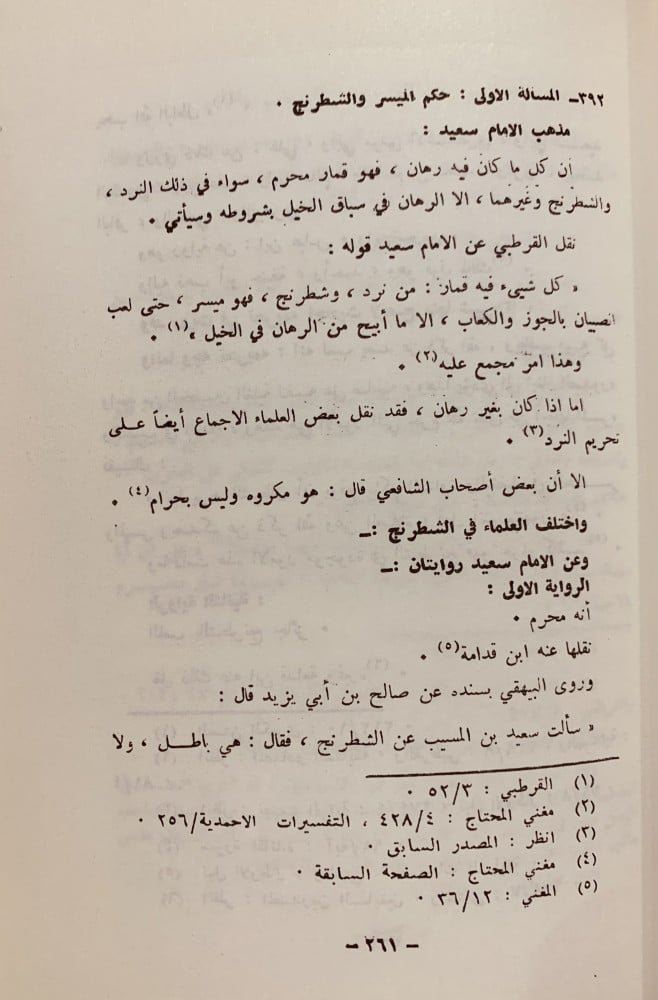 ٣٩٢ـ المسألة الاولى : حكم الميسر والشطرنج ٠
مذهب الامام سعيد :
ان كل ما كان فيه رهان ، فهو قمار محرم ، سواء في ذلك النرد ،
والشطرنج وغيرهما ، الا الرهان في سباق الخيل بشروطه وسيأتي ٠
نقل القرطبي عن الامام سعيد قوله :
« كل شيىء فيه قمار : من نرد ، وشطرنج ، فهو ميسر ، حتى لعب
الصبيان بالجوز والكعاب ، الا ما أبيح من الرهان في الخيل »(١) ٠
وهذا امر مجمع عليه(٢) ٠
اما اذا كان بغير رهان ، فقد نقل بعض العلماء الاجماع أيضاً على
تحريم النرد(٣) ٠
الا أن بعض أصحاب الشافعي قال : هو مكروه وليس بحرام(٤) ٠
واختلف العلماء في الشطرنج :ـ
وعن الامام سعيد روايتان :ـ
الرواية الاولى :
أنه محرم ٠
نقلها عنه ابن قدامة(٥) ٠
وروى البيهقي بسنده عن صالح بن أبي يزيد قال :
« سألت سعيد بن المسيب عن الشطرنج ، فقال : هي باطل ، ولا
(١) القرطبي : ٥٢/٣ ٠
(٢) مغني المحتاج : ٤٢٨/٤ ، التفسيرات الاحمدية/٢٥٦ ٠
(٣) انظر : المصدر السابق ٠
(٤) مغني المحتاج : الصفحة السابقة ٠
(٥) المغني : ٣٦/١٢ ٠
ـ ٢٦١ ـ